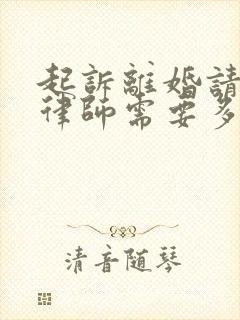 起訴離婚請
律師需要多
清音随琴